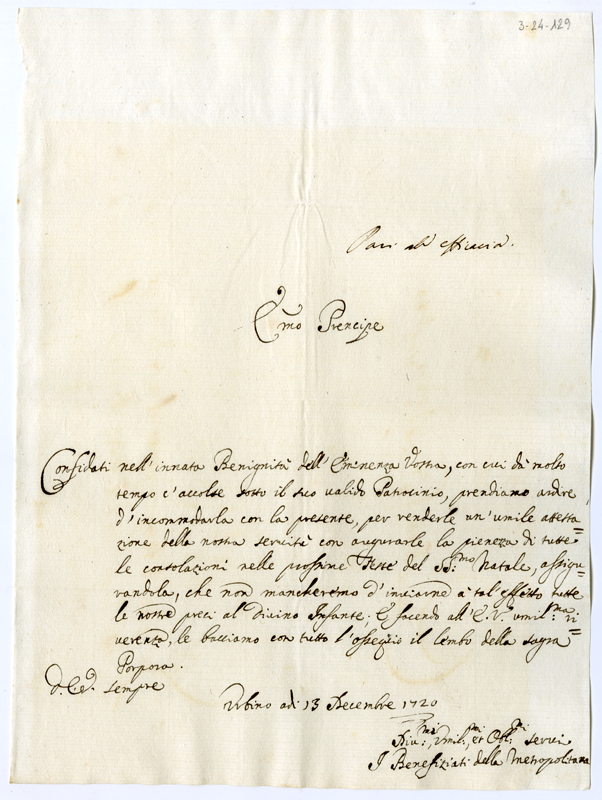 3-24-129
Pari alla efficacia.
E.mo Prencipe
Confidati nell'innata Benignità dell'Eminenza Vostra, con cui dà molto
tempo c'accolse sotto il suo valido Patrocinio, prendiamo ardire
d'incommodarla con la presente, per renderle un'umile attesta=
zione della nostra servitù con augurarle la pienezza di tutte
le consolazioni nelle prossime Feste del S.mo Natale, assigu=
randola, che non mancheremo d'inviarne à tal'effetto tutte
le nostre preci al Divino Infante; E facendo all'E.V. umil.ma ri=
verenza, le bacciamo con tutto l'ossequio il lembo della sagra
Porpora.
sempre
Urbino adi 13 Decembre 1720
Div.mi, Umil.mi, et Obl.mi servi
I Benefiziati della Metropolitana